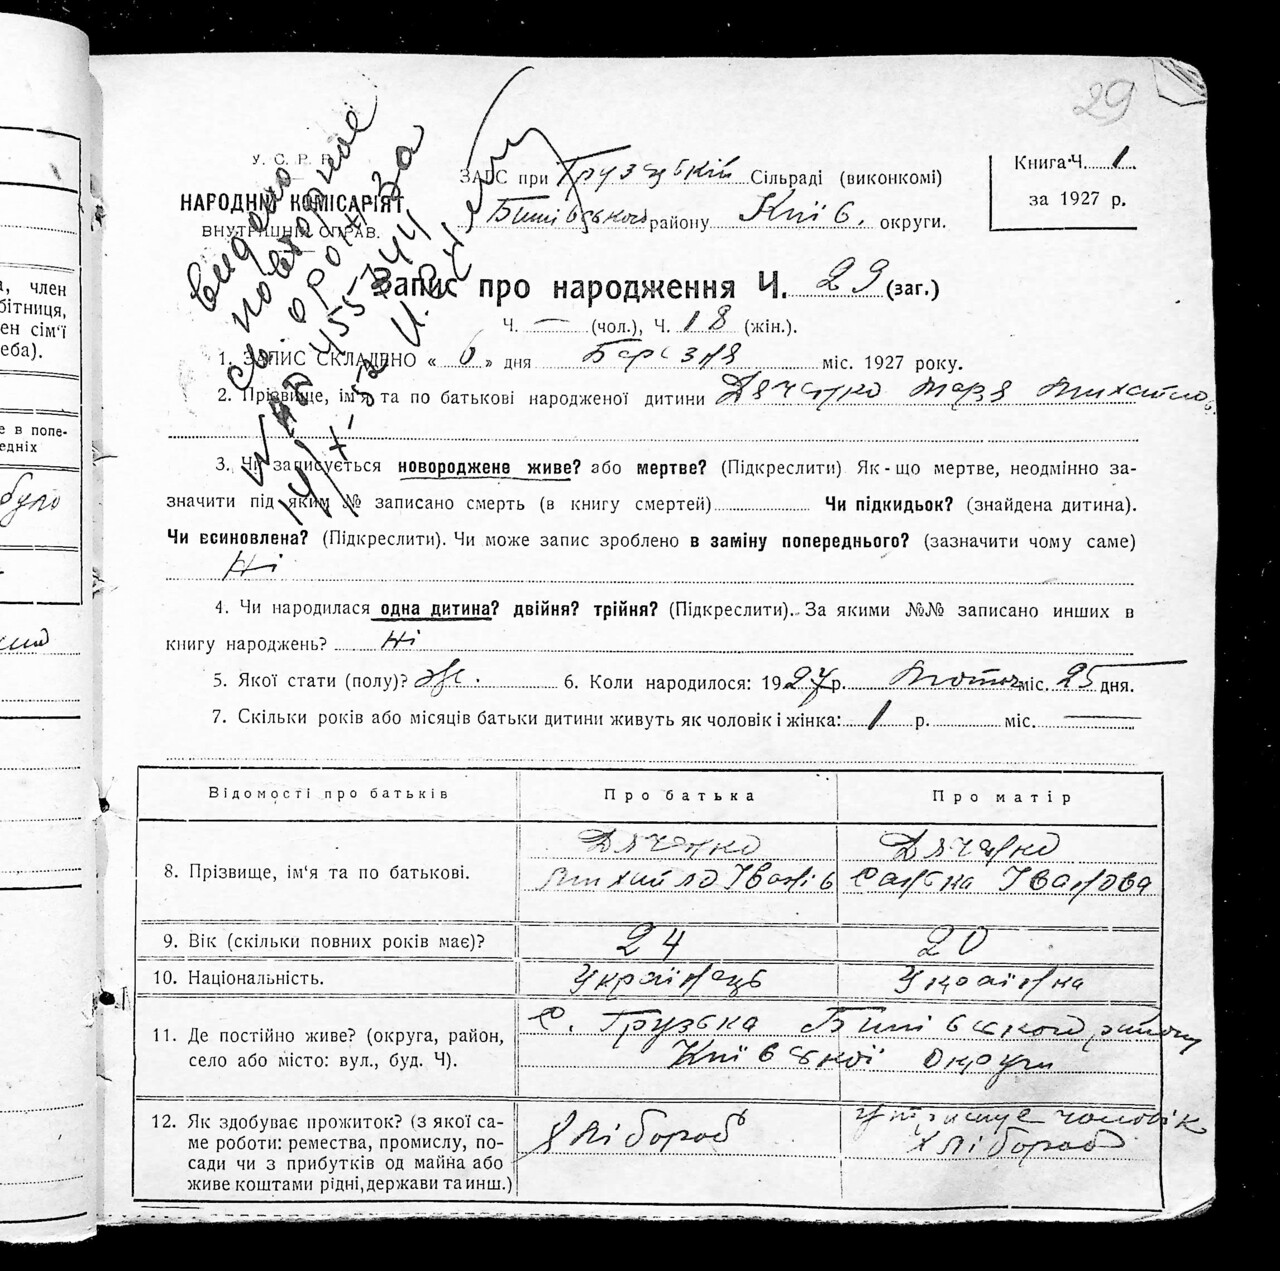 29
У. С. Р. Р.
НАРОДНІЙ КОМІСАРІЯТ
ВНУТРІШНІХ СПРАВ.
ЗАГС при Грузській Сільраді (виконкомі)
Бишівського району Київ. округи.
Книга Ч. 1
за 1927 р.
видано
повторне
св. о рожд за
№ 455744
14/X-52
Запис про народження Ч. 29 (заг.)
Ч. — (чол.), Ч. 18 (жін.).
1. ЗАПИС СКЛАДЕНО « 6 » дня Березня міс. 1927 року.
2. Прізвище, ім'я та по батькові народженої дитини Дяченко Марія Михайлов
3. Чи записується новороджене живе? або мертве? (Підкреслити) Як-що мертве, неодмінно за-
значити під яким № записано смерть (в книгу смертей) Чи підкидьок? (знайдена дитина).
Чи всиновлена? (Підкреслити). Чи може запис зроблено в заміну попереднього? (зазначити чому саме)
Ні
4. Чи народилася одна дитина? двійня? трійня? (Підкреслити). За якими №№ записано инших в
книгу народжень? Ні
5. Якої стати (полу)? Ж. 6. Коли народилося: 1927 р. Лютого міс. 25 дня.
7. Скільки років або місяців батьки дитини живуть як чоловік і жінка: 1 р. міс. —
Відомості про батьків Про батька Про матір
8. Прізвище, ім'я та по батькові. Дяченко Михайло Іванів Дяченко Іванова
9. Вік (скільки повних років має)? 24 20
10. Національність. Українець Українка
11. Де постійно живе? (округа, район,
село або місто: вул., буд. Ч).
С. Грузька Бишівського району
Київської округи
12. Як здобуває прожиток? (з якої са-
ме роботи: ремества, промислу, по-
сади чи з прибутків од майна або
живе коштами рідні, держави та инш.)
Хлібороб
утримує чоловік
хлібороб
а, член
бітниця,
ен сім'ї
еба).
е в попе-
едніх
було